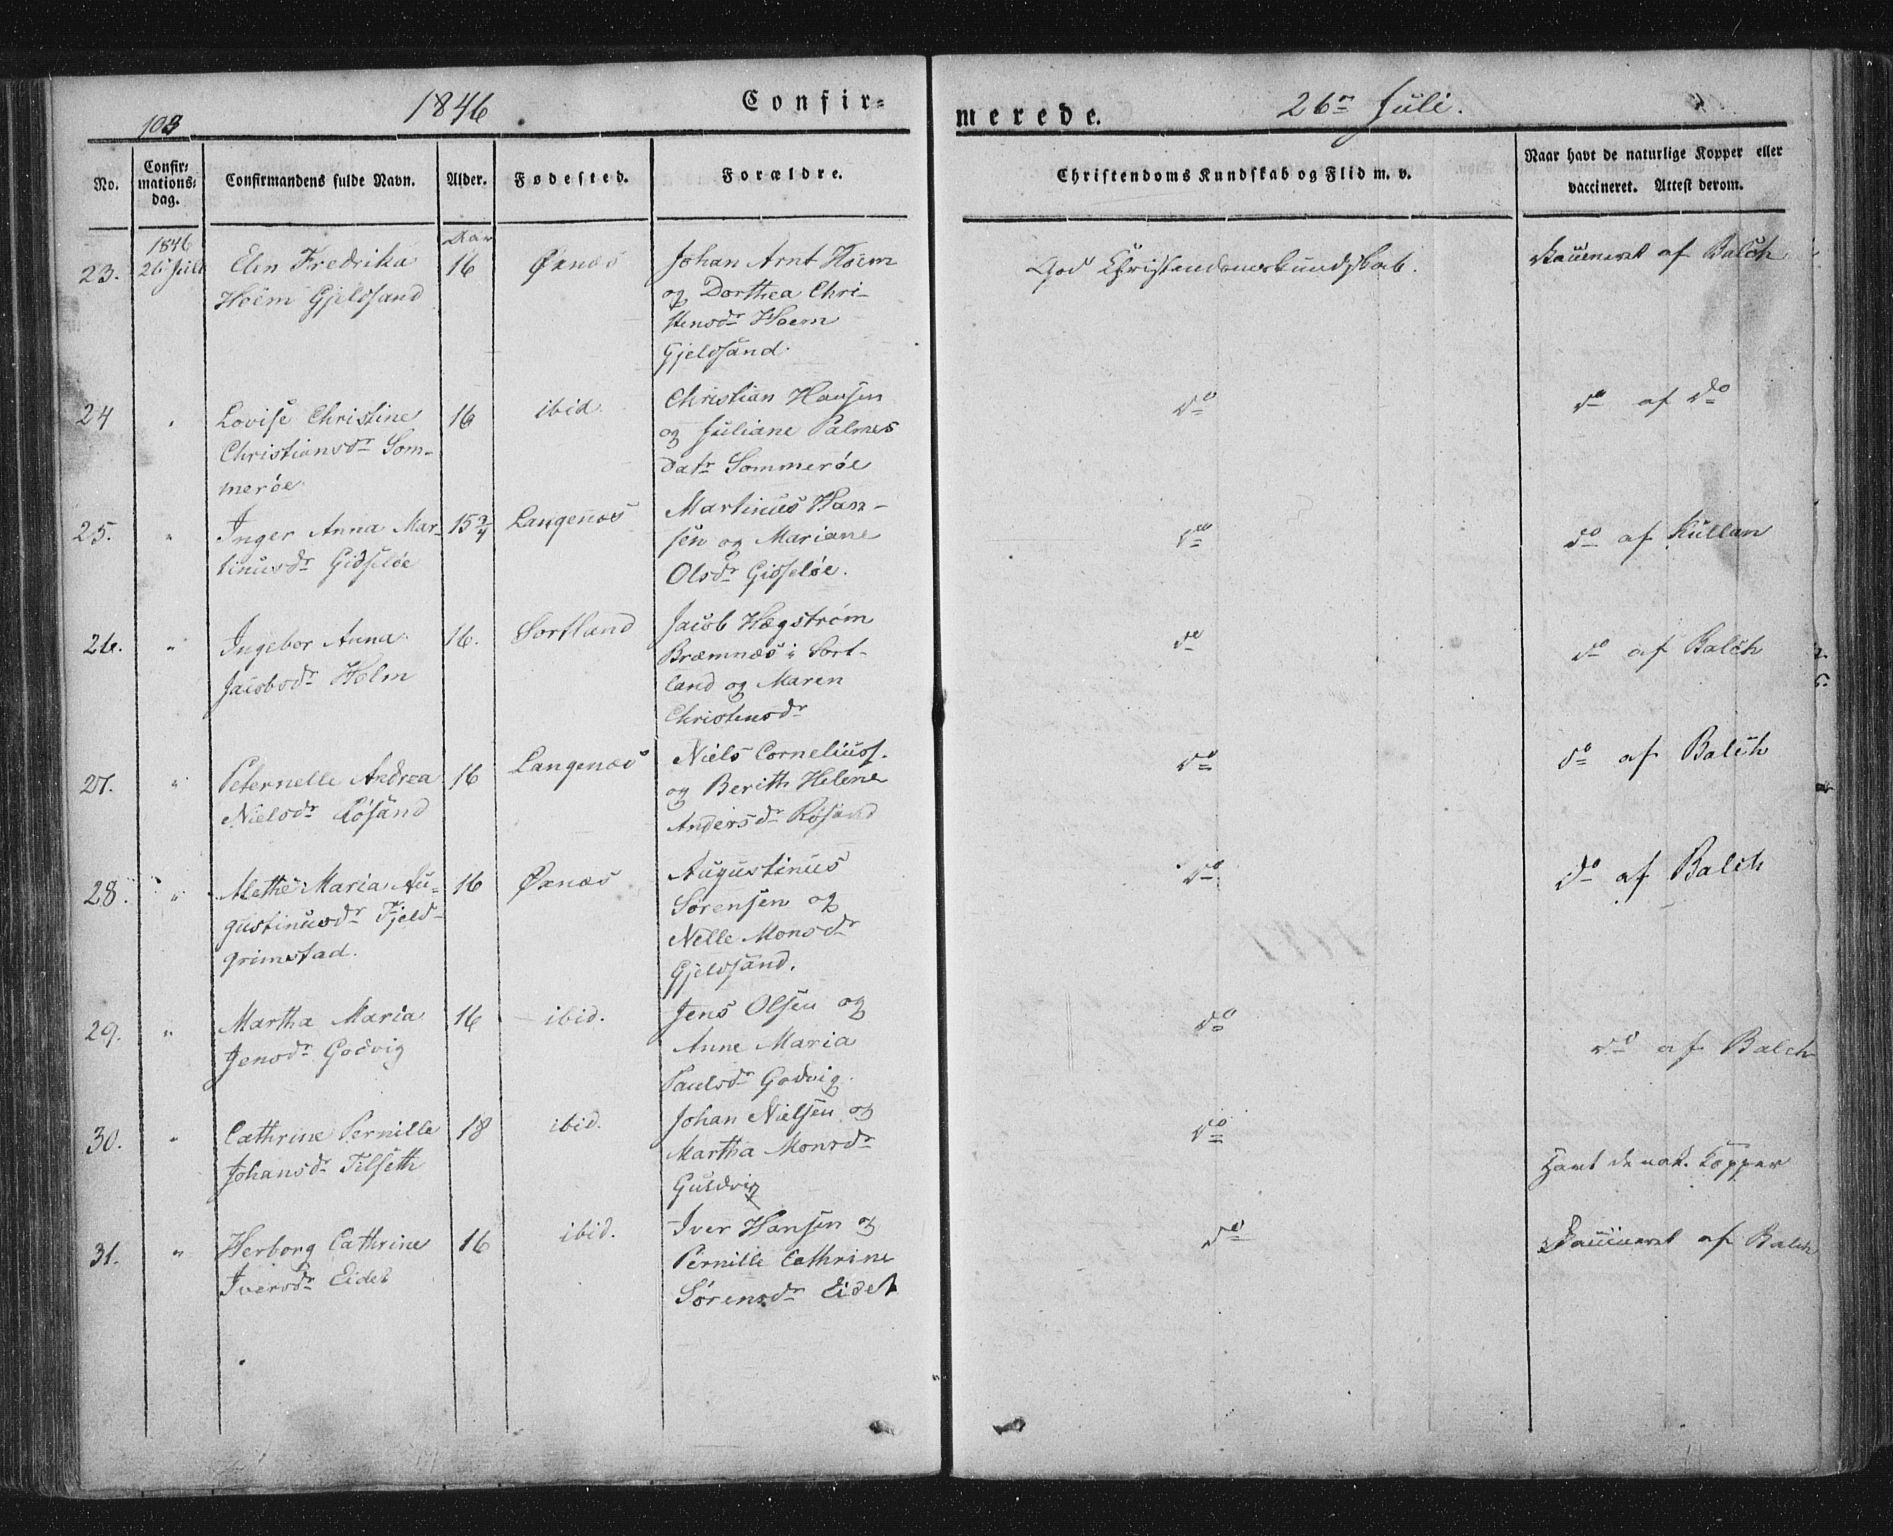 103
1846
Confir-
merede.
26de Juli.
No.
Confir-
mations-
dag.
Confirmandens fulde Navn.
Alder.
Fødested.
Forældre.
Christendoms Kundskab og Flid m. v.
Naar havt de naturlige Kopper eller
vaccineret. Attest derom.
1846
Aar
23.
26 Juli
Elen Fredrika
Hoem Gjeldsand
16
Øxnæs
Johan Arnt Hoem
og Dorthea Chri-
stensdr Hoem
Gjeldsand.
God Christendomskundskab.
Vaccineret af Balch
24
"
Lovise Christine
Christiansdr Som-
merøe
16
ibid.
Christian Hansen
og Juliane Palmes
datr Sommerøe
do
do af do
25.
"
Inger Anna Mar-
tinusdr Gidsløe
15 3/4
Langenæs
Martinus Han-
sen og Mariane
Olsdr Gisløe.
do
do af Kullan
26.
"
Ingebor Anna
Jacobsdr Holm
16.
Sortland
Jacob Hægstrøm
Bræmnæs i Sort-
land og Maren
Christensdr
do
do af Balch
27.
"
Peternelle Andrea
Nielsdr Røsand
16
Langenæs
Niels Corneliuss.
og Berith Helene
Andersdr Røsand
do
do af Balch
28.
"
Alethe Maria Au-
gustinusdr Fjeld-
grimstad.
16
Øxnæs
Augustinus
Sørensen og
Nelle Monsdr
Gjeldsand.
do
do af Balch
29.
"
Martha Maria
Jensdr Godvig
16
ibid.
Jens Olsen og
Anne Maria
Paulsdr Godvig.
do
do af Balch
30.
"
Cathrine Pernille
Johansdr Tilseth
18
ibid.
Johan Nielsen og
Martha Monsdr
Guldvig
do
Havt de nat. Kopper
31.
"
Herborg Cathrine
Iversdr Eidet
16
ibid.
Iver Hansen og
Pernille Cathrine
Sørensdr Eidet
do
Vaccineret af Balch